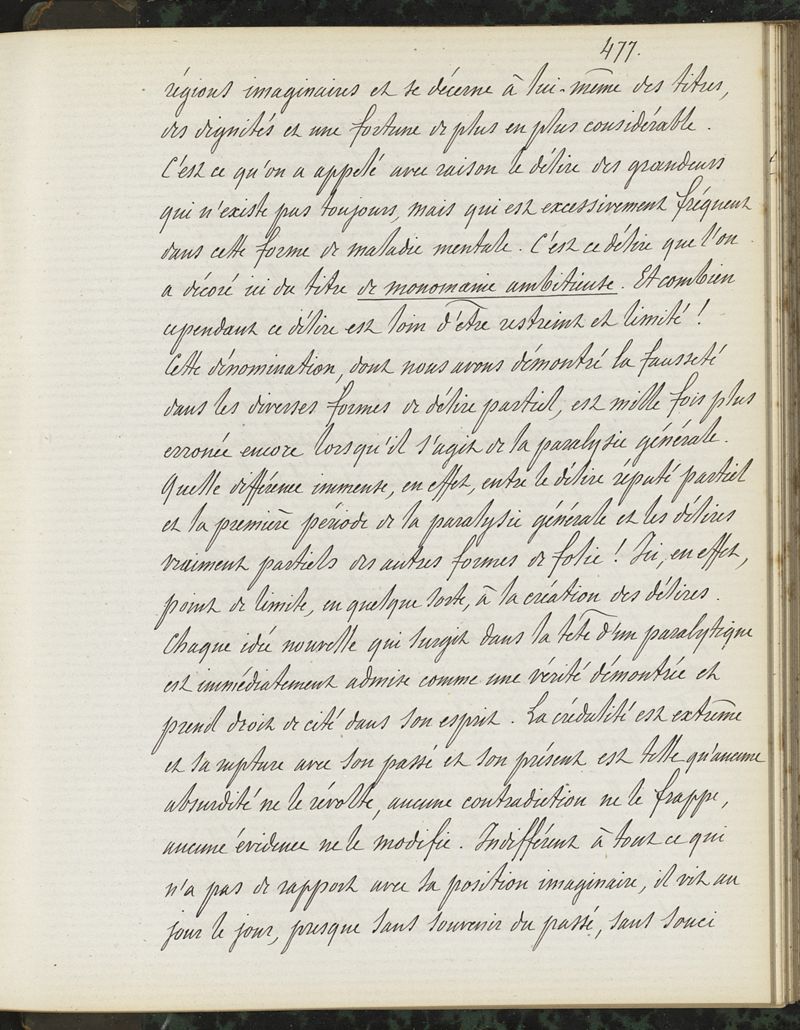 477.
régions imaginaires et se décerne à lui-même des titres,
des dignités et une fortune de plus en plus considérable.
C'est ce qu'on a appelé avec raison le délire des grandeurs
qui n'existe pas toujours, mais qui est excessivement fréquent
dans cette forme de maladie mentale. C'est ce délire que l'on
a décoré ici du titre de monomanie ambitieuse. Et combien
cependant ce délire est loin d'être restreint et limité !
Cette dénomination, dont nous avons démontré la fausseté
dans les diverses formes de délire partiel, est mille fois plus
erronée encore lorsqu'il s'agit de la paralysie générale.
Quelle différence immense, en effet, entre le délire réputé partiel
et la première période de la paralysie générale et les délires
vraiment partiels des autres formes de folie ! Ici, en effet,
point de limite, en quelque sorte, à la création des délires.
Chaque idée nouvelle qui surgit dans la tête d'un paralytique
est immédiatement admise comme une vérité démontrée et
prend droit de cité dans son esprit. La crédulité est extrême
et sa rupture avec son passé et son présent est telle qu'aucune
absurdité ne le révolte, aucune contradiction ne le frappe,
aucune évidence ne le modifie. Indifférent à tout ce qui
n'a pas de rapport avec sa position imaginaire, il vit au
jour le jour, presque sans souvenir du passé, sans souci